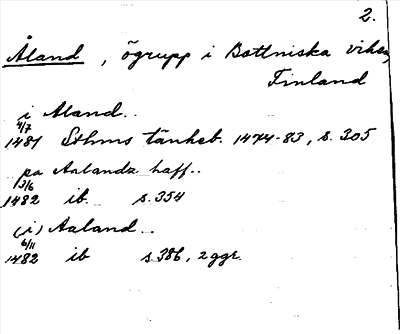 2.
Åland, ögrupp i Bottniska viken,
Finland
i Aland..
4/7
1481 Sthms tänkeb. 1474-83, s. 305
pa Aalandz haff..
13/6
1482 ib. s. 354
(i) Aaland..
6/11
1482 ib s 386, 2 ggr.